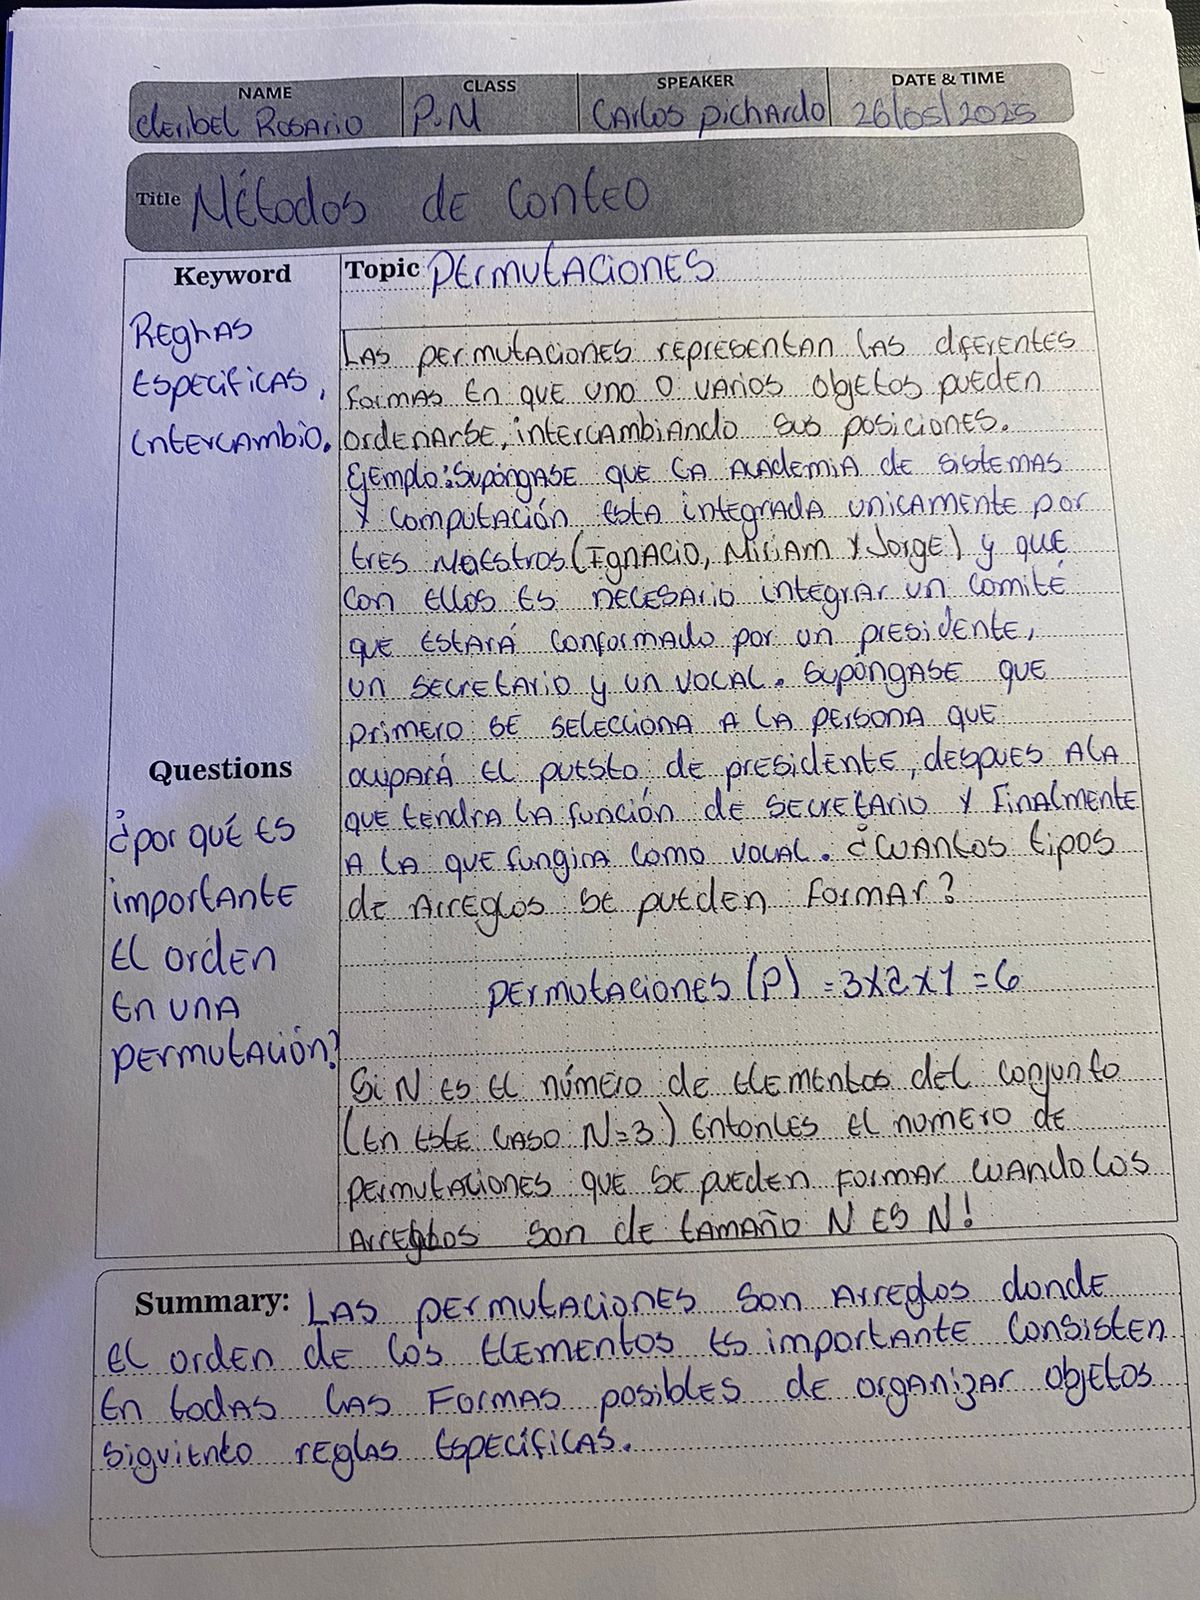 NAME CLASS SPEAKER DATE & TIME
cleribel Rosario P.M Carlos Pichardo 26/05/2025
Title Métodos de Conteo
Keyword
Reglas
Especificas,
Intercambio.
Topic Permutaciones
Las permutaciones representan las diferentes
formas en que uno o varios objetos pueden
ordenarse, intercambiando sus posiciones.
Ejemplo: Supóngase que la academia de sistemas
y computación esta integrada unicamente por
tres maestros (Ignacio, Miriam y Jorge) y que
con ellos es necesario integrar un comité
que estará conformado por un presidente,
un secretario y un vocal. Supóngase que
primero se selecciona a la persona que
ocupará el puesto de presidente, despues a la
que tendra la función de secretario y finalmente
a la que fungira como vocal. ¿Cuantos tipos
de arreglos se pueden formar?
permutaciones (P) = 3x2x1 = 6
Si N es el número de elementos del conjunto
(en este caso N=3) entonces el numero de
permutaciones que se pueden formar cuando los
arreglos son de tamaño N es N!
Questions
¿por qué es
importante
el orden
en una
permutación?
Summary: Las permutaciones son arreglos donde
el orden de los elementos es importante consisten
en todas las formas posibles de organizar objetos
siguiento reglas específicas.